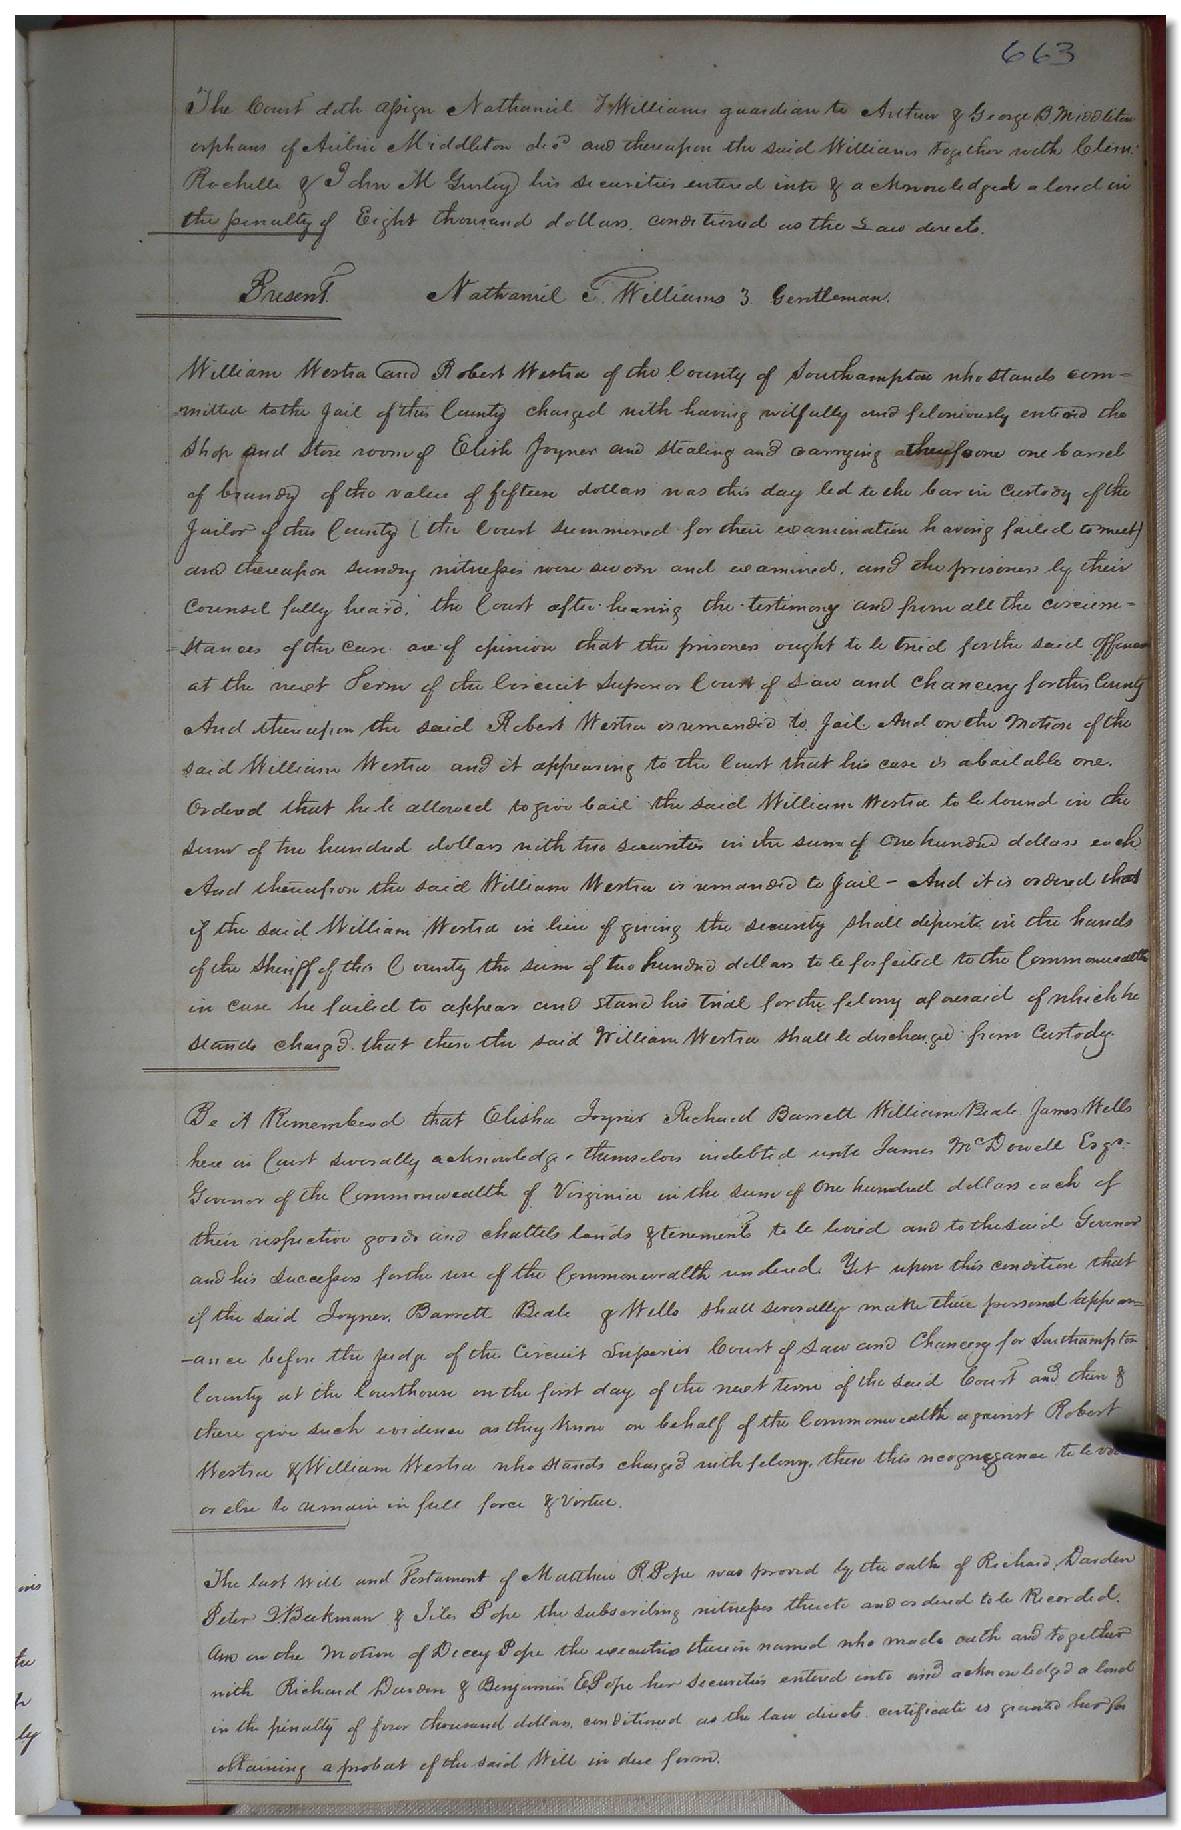 663
The Court doth assign Nathaniel T Williams guardian to Arthur & George B Middleton
orphans of Middleton decd and thereupon the said Williams together with Clem:
Rochelle & John M Gurley his securities entered into & acknowledged a bond in
the penalty of Eight thousand dollars. conditioned as the Law directs.
Present Nathaniel T. Williams } Gentleman.
William Westra and Robert Westra of the County of Southampton who stands com-
mitted to the Jail of this County charged with having wilfully and feloniously entered the
Shop and Store room of Elish Joyner and stealing and carrying one barrel
of brandy of the value of fifteen dollars was this day led to the bar in Custody of the
Jailor of this County (the Court summoned for their examination having failed to meet)
and thereupon sundry witnesses were sworn and examined. and the prisoners by their
Counsel fully heard. the Court after hearing the testimony and from all the circum-
-stances of the case are of opinion that the prisoners ought to be tried for the said Offence
at the next Term of the Circuit Superior Court of Law and Chancery for this County
And thereupon the said Robert Westra is remanded to Jail. And on the Motion of the
said William Westra and it appearing to the Court that his case is a bailable one.
Ordered that he be allowed to give bail the said William Westra to be bound in the
sum of two hundred dollars with two securities in the sum of One hundred dollars each
And thereupon the said William Westra is remanded to Jail - And it is ordered that
if the said William Westra in lieu of giving the security shall deposite in the hands
of the Sheriff of this County the sum of two hundred dollars to be forfeited to the Commonwealth
in case he failed to appear and stand his trial for the felony aforesaid of which he
stands charged. that then the said William Westra shall be discharged from Custody.
Be it Remembered that Elisha Joyner Richard Barrett William Beale James Wells
here in Court severally acknowledge themselves indebted unto James McDowell Esqr.
Govenor of the Commonwealth of Virginia in the sum of One hundred dollars each of
their respective goods and chattels lands & tenements to be levied and to the said Govenor
and his successors for the use of the Commonwealth rendered. Yet upon this condition that
if the said Joyner, Barrett Beale & Wells shall severally make their personal appear-
-ance before the Judge of the Circuit Superior Court of Law and Chancery for Southampton
County at the Courthouse on the first day of the next term of the said Court and then &
there give such evidence as they know on behalf of the Commonwealth against Robert
Westra & William Westra who stands charged with felony. then this recognizance to be
or else to remain in full force & Virtue.
The last Will and Testament of Matthew R. Pope was proved by the oath of Richard Darden
Peter D. Beekman & Giles Pope the subscribing witnesses thereto and ordered to be Recorded.
And on the Motion of Diccey Pope the executrix therein named who made oath and together
with Richard Darden & Benjamin E Pope her securities entered into and acknowledged a bond
in the penalty of four thousand dollars. conditioned as the law directs. certificate is granted her for
obtaining a probat of the said Will in due form.